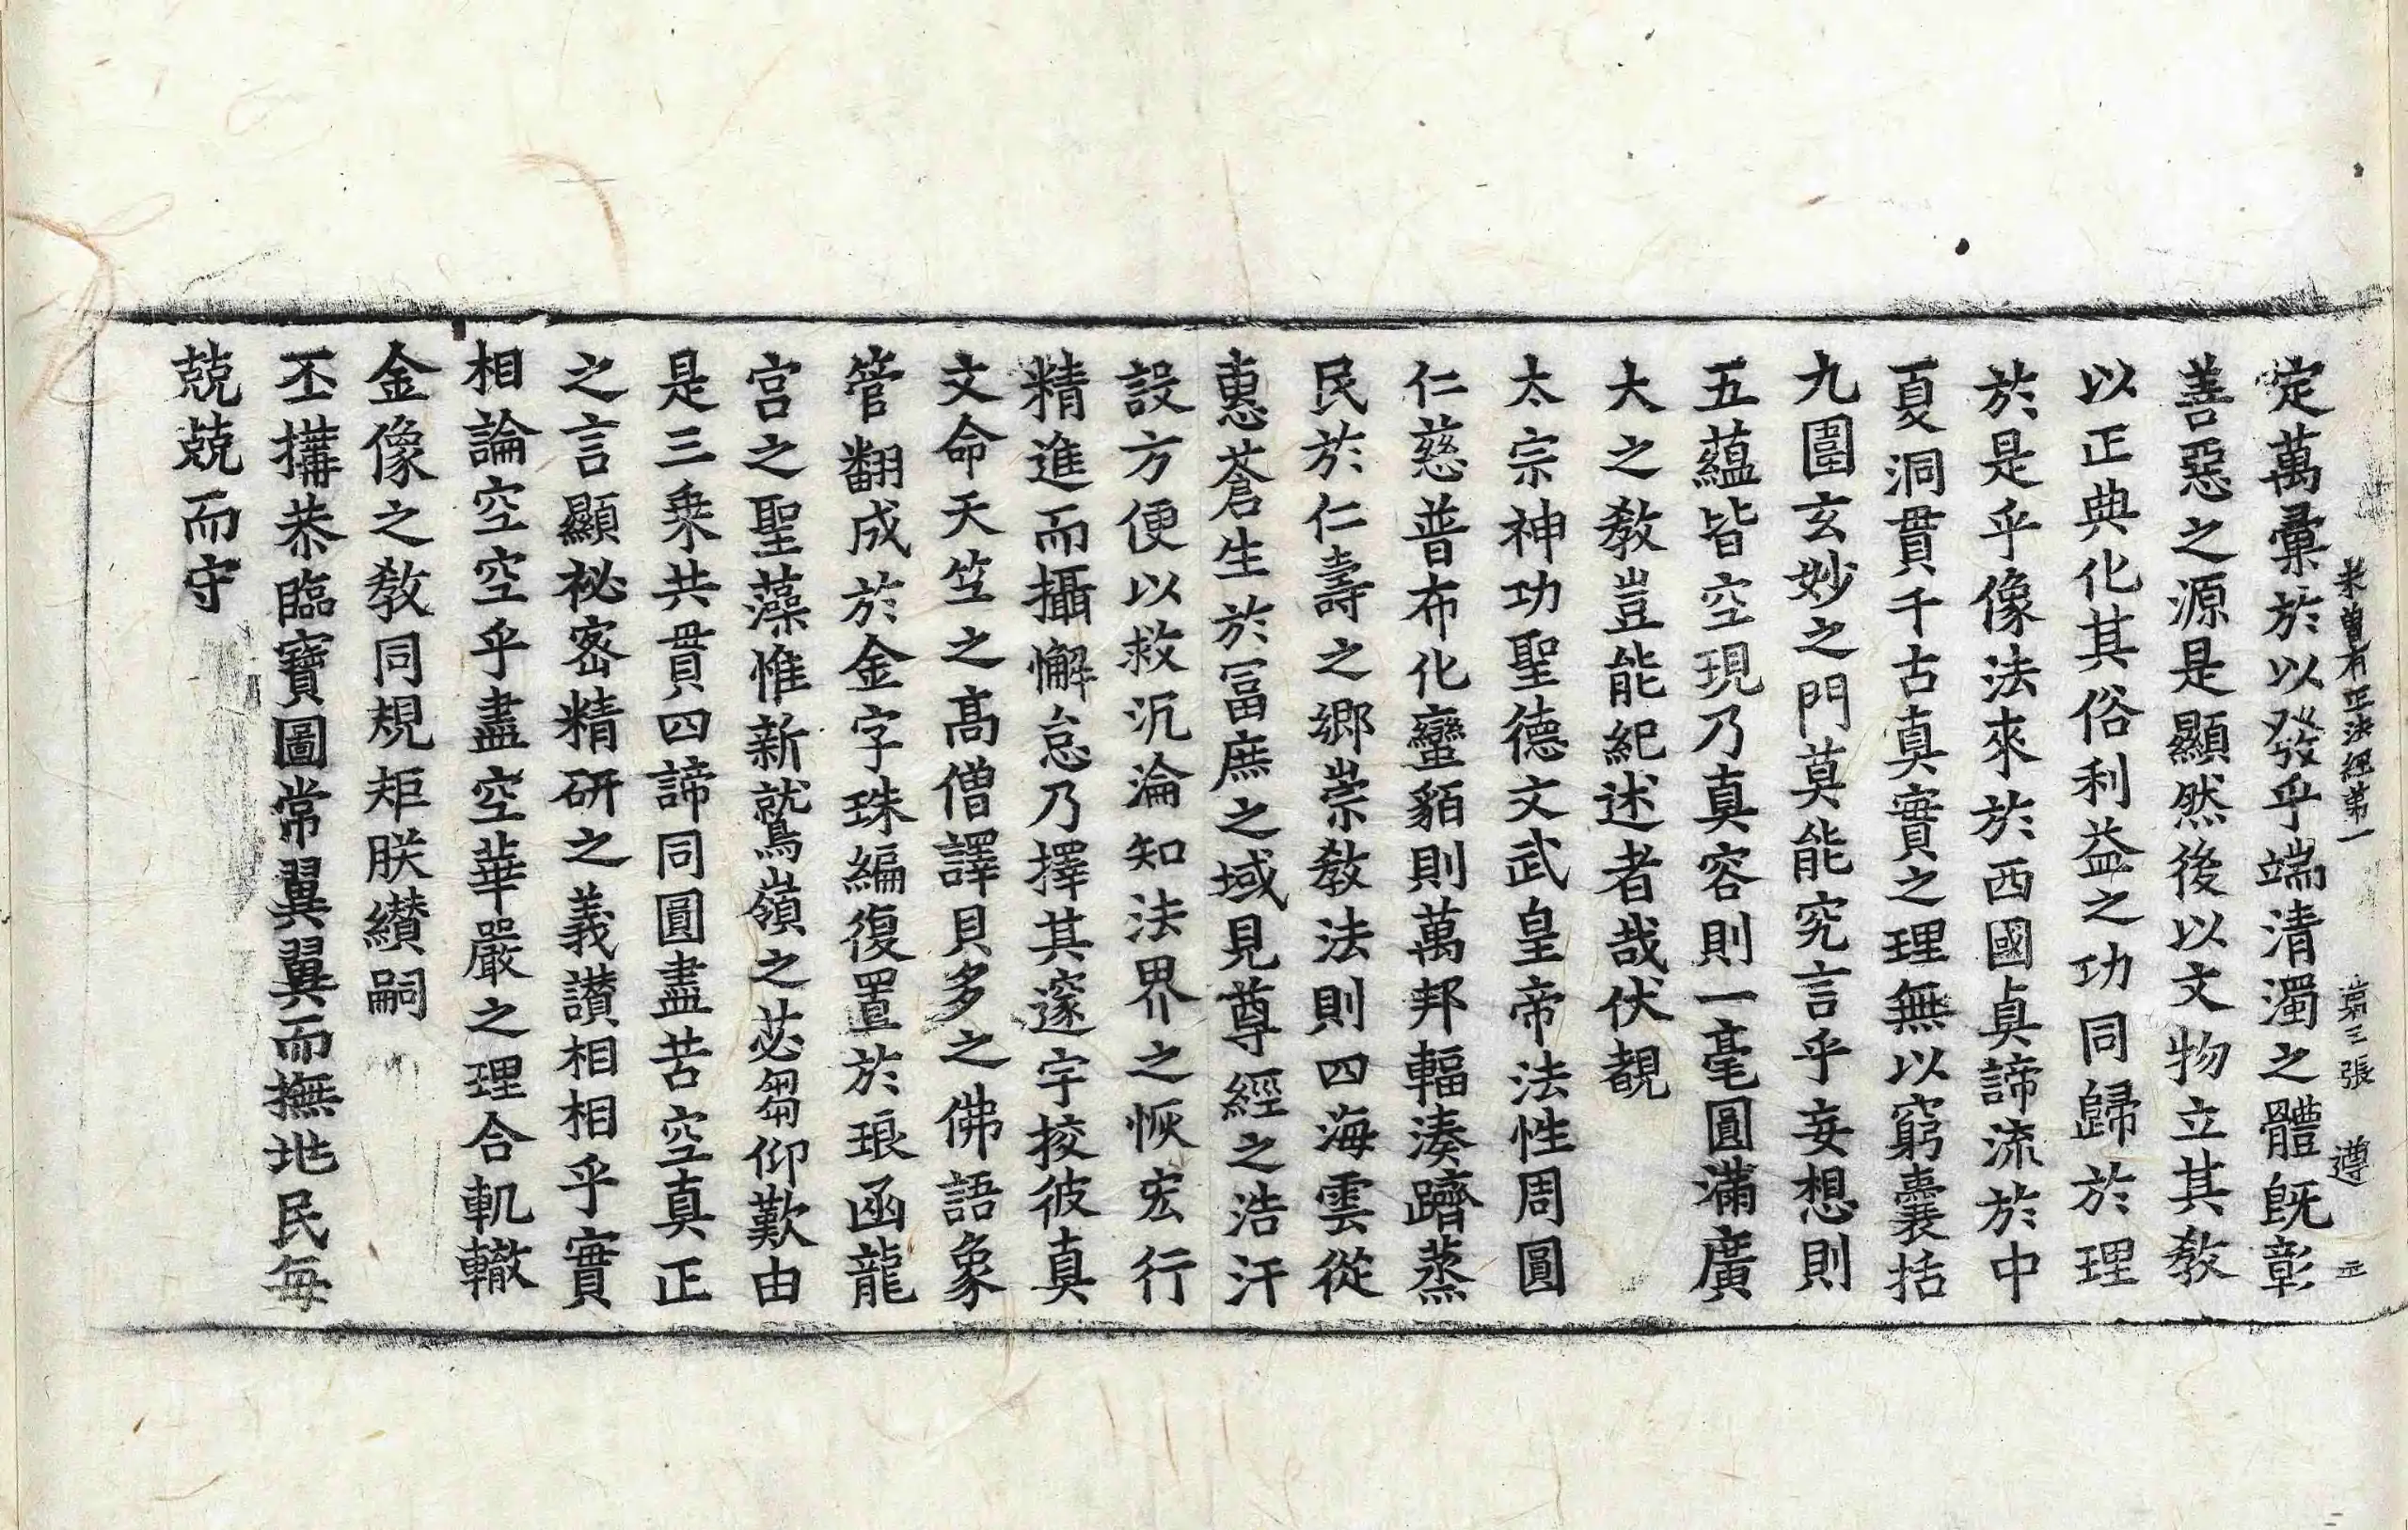 未曾有正法經第一 第三張 遵 正
定萬彙於以發乎端清濁之體旣彰
善惡之源是顯然後以文物立其敎
以正典化其俗利益之功同歸於理
於是乎像法來於西國眞諦流於中
夏洞貫千古真實之理無以窮囊括
九圍玄妙之門莫能究言乎妄想則
五蘊皆空現乃真容則一毫圓滿廣
大之敎豈能紀述者哉伏覩
太宗神功聖德文武皇帝法性周圓
仁慈普布化蠻貊則萬邦輻湊躋蒸
民於仁壽之鄉崇敎法則四海雲從
惠蒼生於冨庶之域見尊經之浩汗
設方便以救沉淪知法界之恢宏行
精進而攝懈怠乃擇其邃宇挍彼真
文命天竺之髙僧譯貝多之佛語象
管翻成於金字珠編復置於琅函龍
宫之聖藻惟新鷲嶺之苾芻仰歎由
是三乘共貫四諦同圓盡苦空真正
之言顯祕密精研之義讃相相乎實
相論空空乎盡空華嚴之理合軌轍
金像之敎同規矩朕纉嗣
丕搆恭臨寶圖常翼翼而撫地民每
兢兢而守